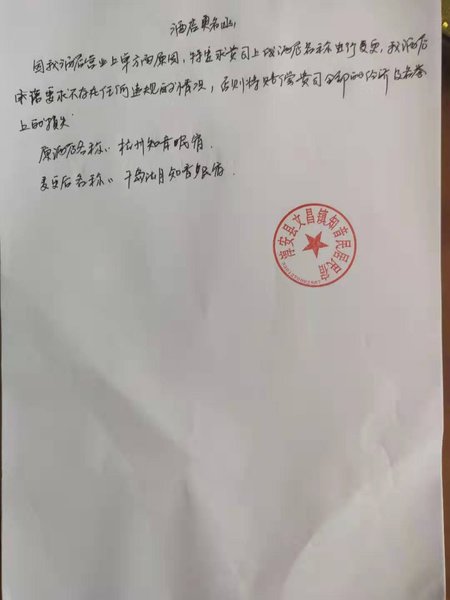 酒店更名函
因我酒店营业上单方面原因,特要求贵司上做酒店名称进行变更,我酒店
承诺要求不存在任何违规的情况,否则将赔偿贵司全部的经济与名誉
上的损失
原酒店名称:杭州知音民宿
变更后名称:千岛湖月知音民宿
淳安县文昌镇知音民居民宿